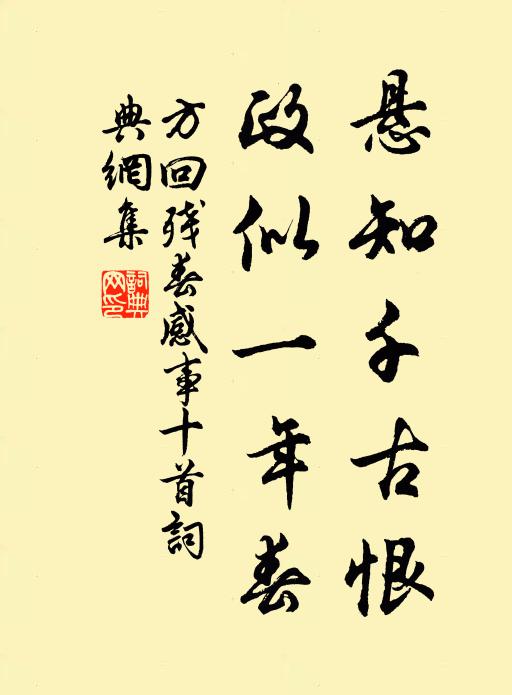 悬知千古恨
政似一年春
方回残春感事十首詞
典網集
詞典网印